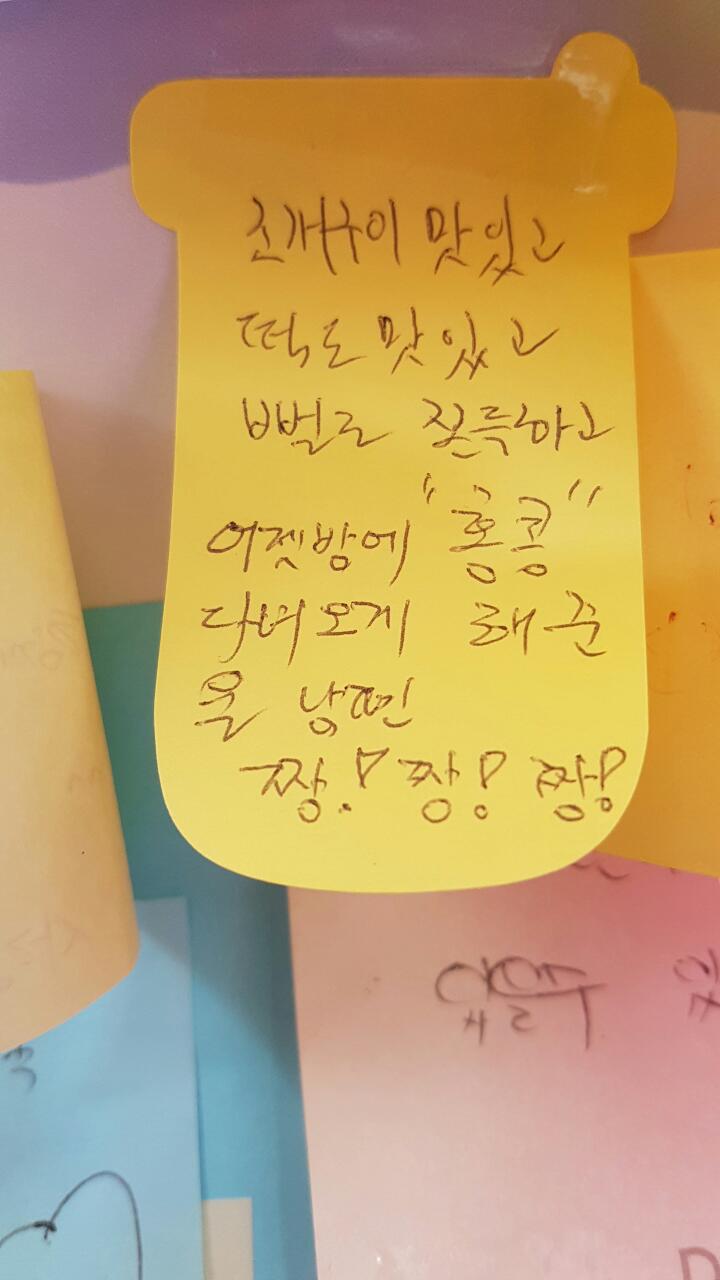 조개구이 맛있고
떡도 맛있고
뻘로 쫀득하고
어젯밤에 "홍콩"
다녀오게 해준
울 낭편
짱! 짱! 짱!